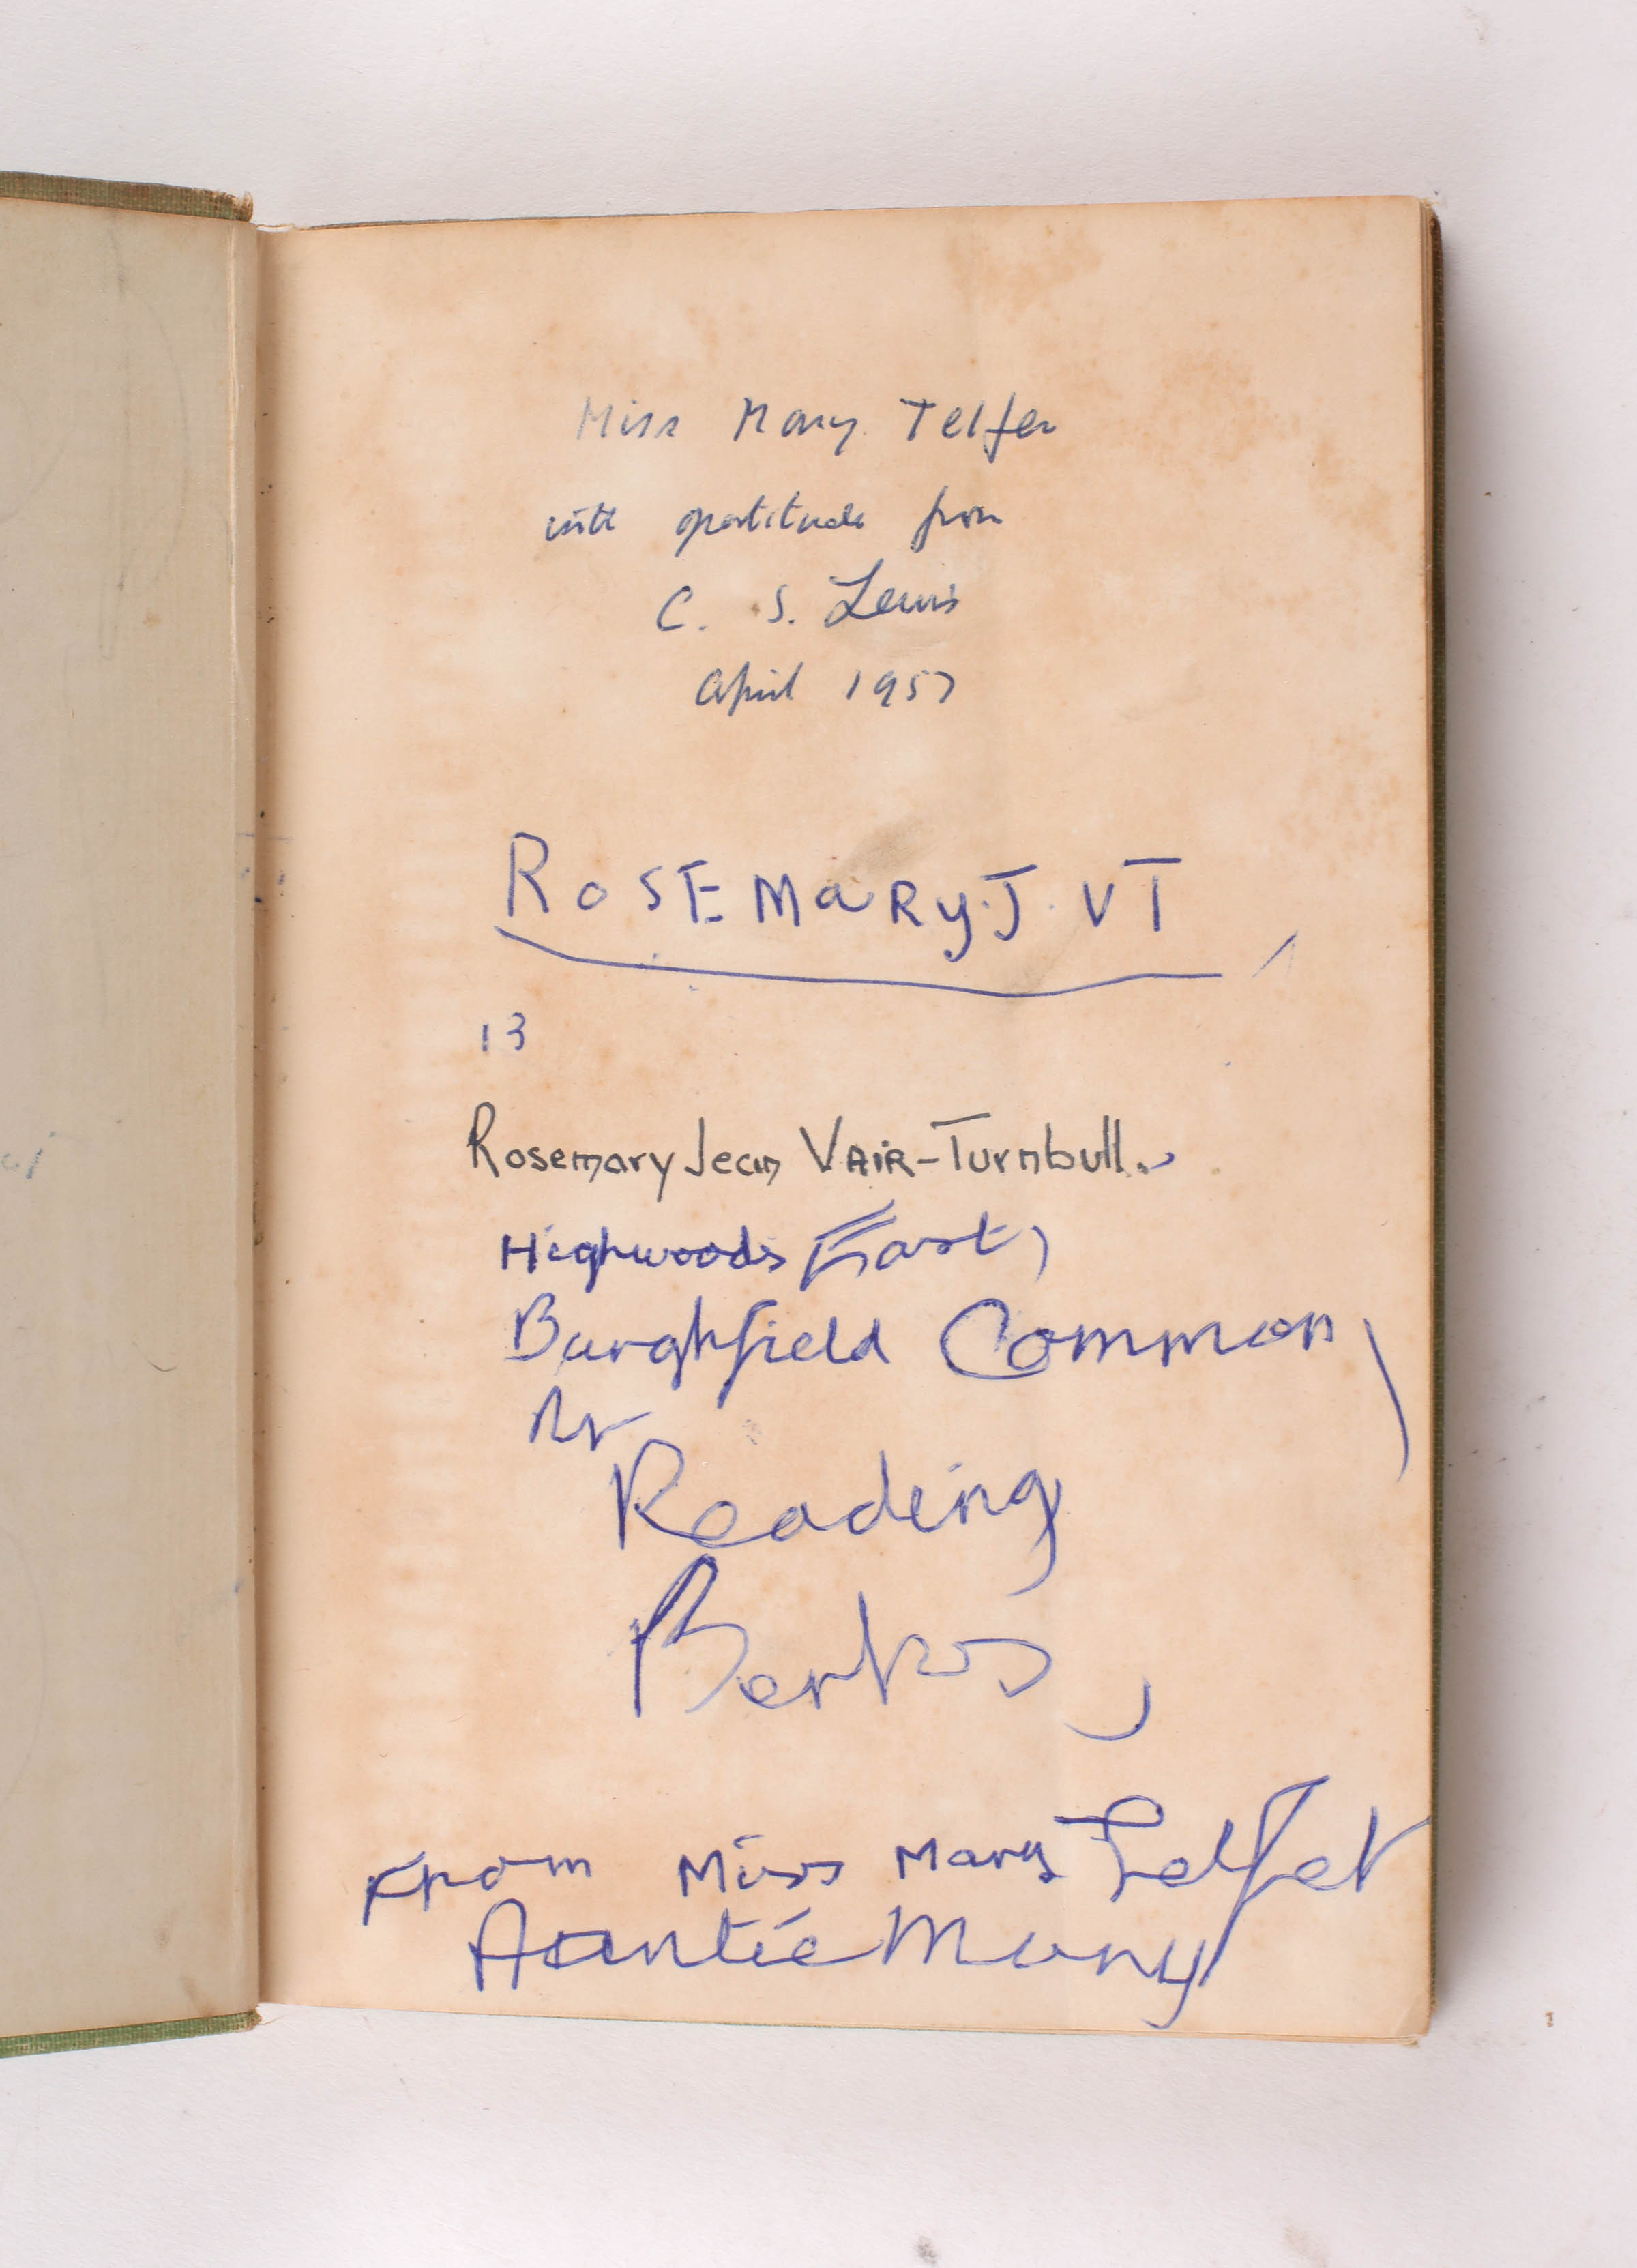 Miss Mary Telfer
with gratitude from
C. S. Lewis
April 1957
ROSEMaRy.J.VT
13
Rosemary Jean VAiR-Turnbull.
Highwoods East,
Burghfield Common,
Nr
Reading
Berks,
From Miss Mary Telfer
Auntie Mary